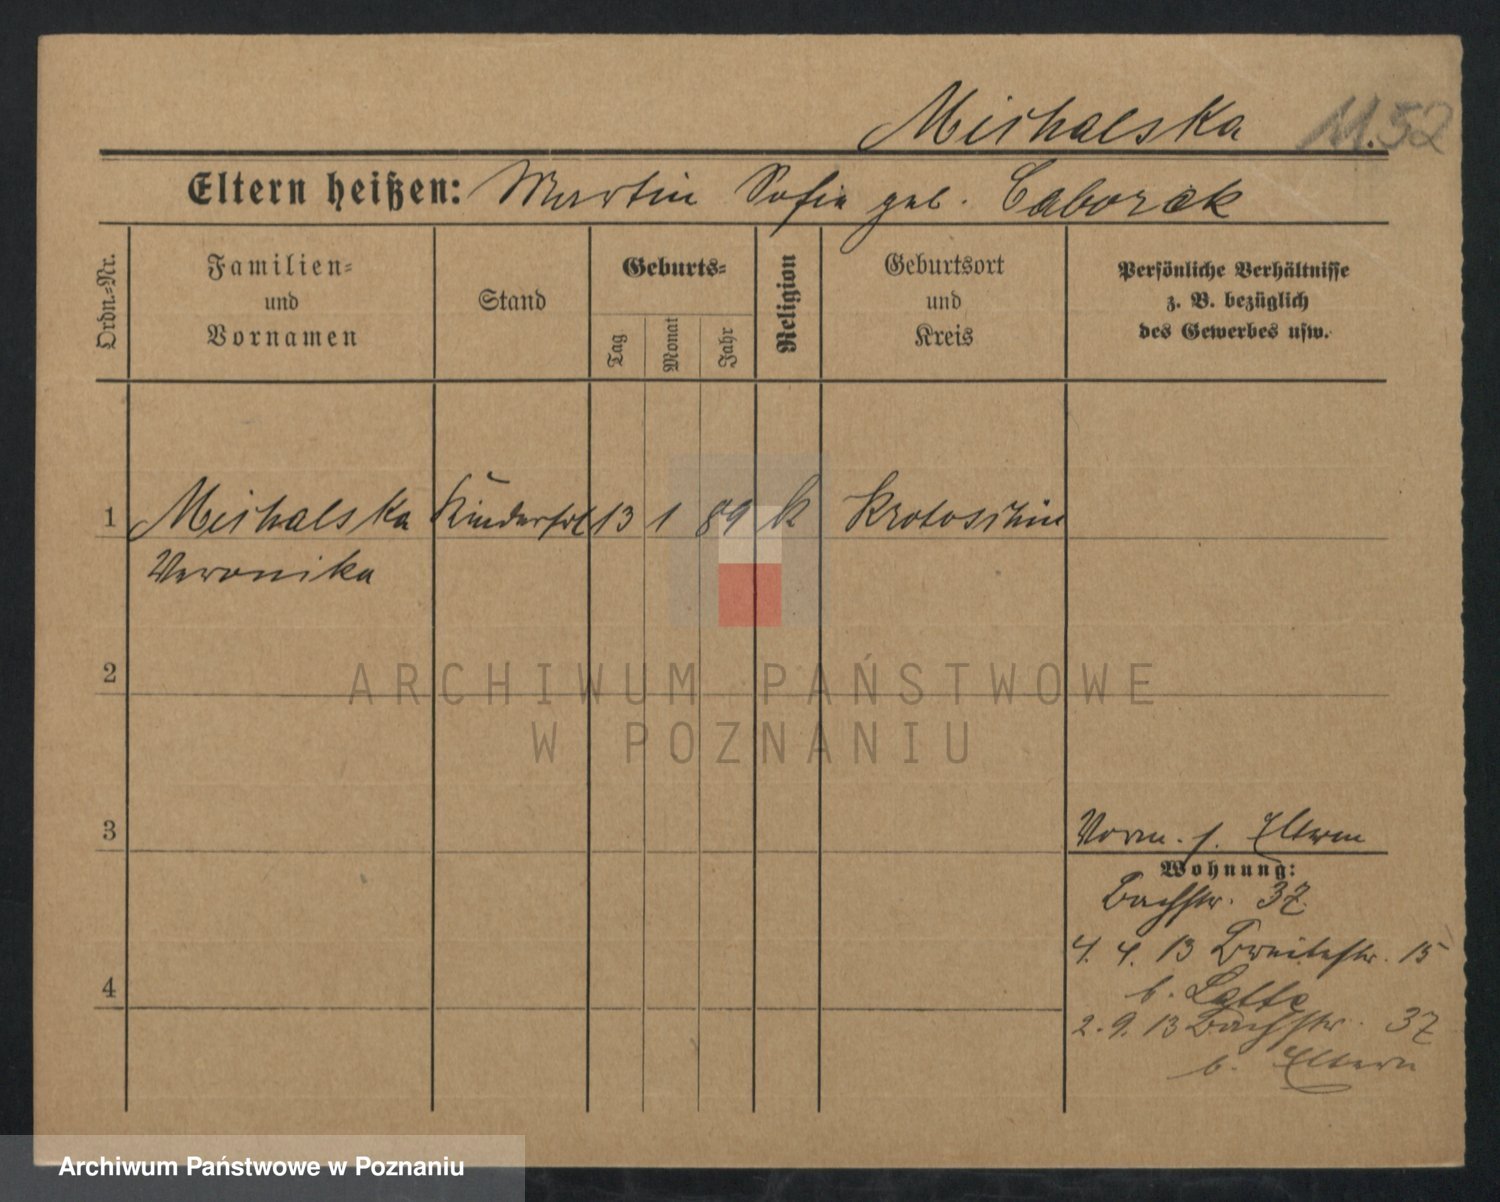 Michalska M.52
Eltern heißen: Martin Sofie geb. Caborek
Ordn.-Nr.
Familien-
und
Vornamen
Stand
Geburts-
Tag
Monat
Jahr
Religion
Geburtsort
und
Kreis
Persönliche Verhältnisse
z. B. bezüglich
des Gewerbes usw.
1 Michalska Kinderfrl 13 1 89 k Krotoschin
Veronika
2
3
Vorm. s. Eltern
Wohnung:
Bachstr. 37
4. 4. 13 Breitestr. 15
b. Latte
4
2. 9. 13 Bachstr. 37
b. Eltern
ARCHIWUM PAŃSTWOWE
W POZNANIU
Archiwum Państwowe w Poznaniu